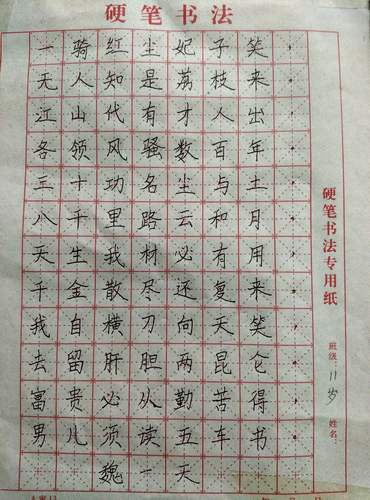 硬笔书法
一骑红尘妃子笑,
无人知是荔枝来.
江山代有才人出,
各领风骚数百年.
三十功名尘与土,
八千里路云和月.
天生我材必有用,
千金散尽还复来.
我自横刀向天笑,
去留肝胆两昆仑.
富贵必从勤苦得,
男儿须读五车书.
魏一天
硬笔书法专用纸
班级 11岁 姓名: